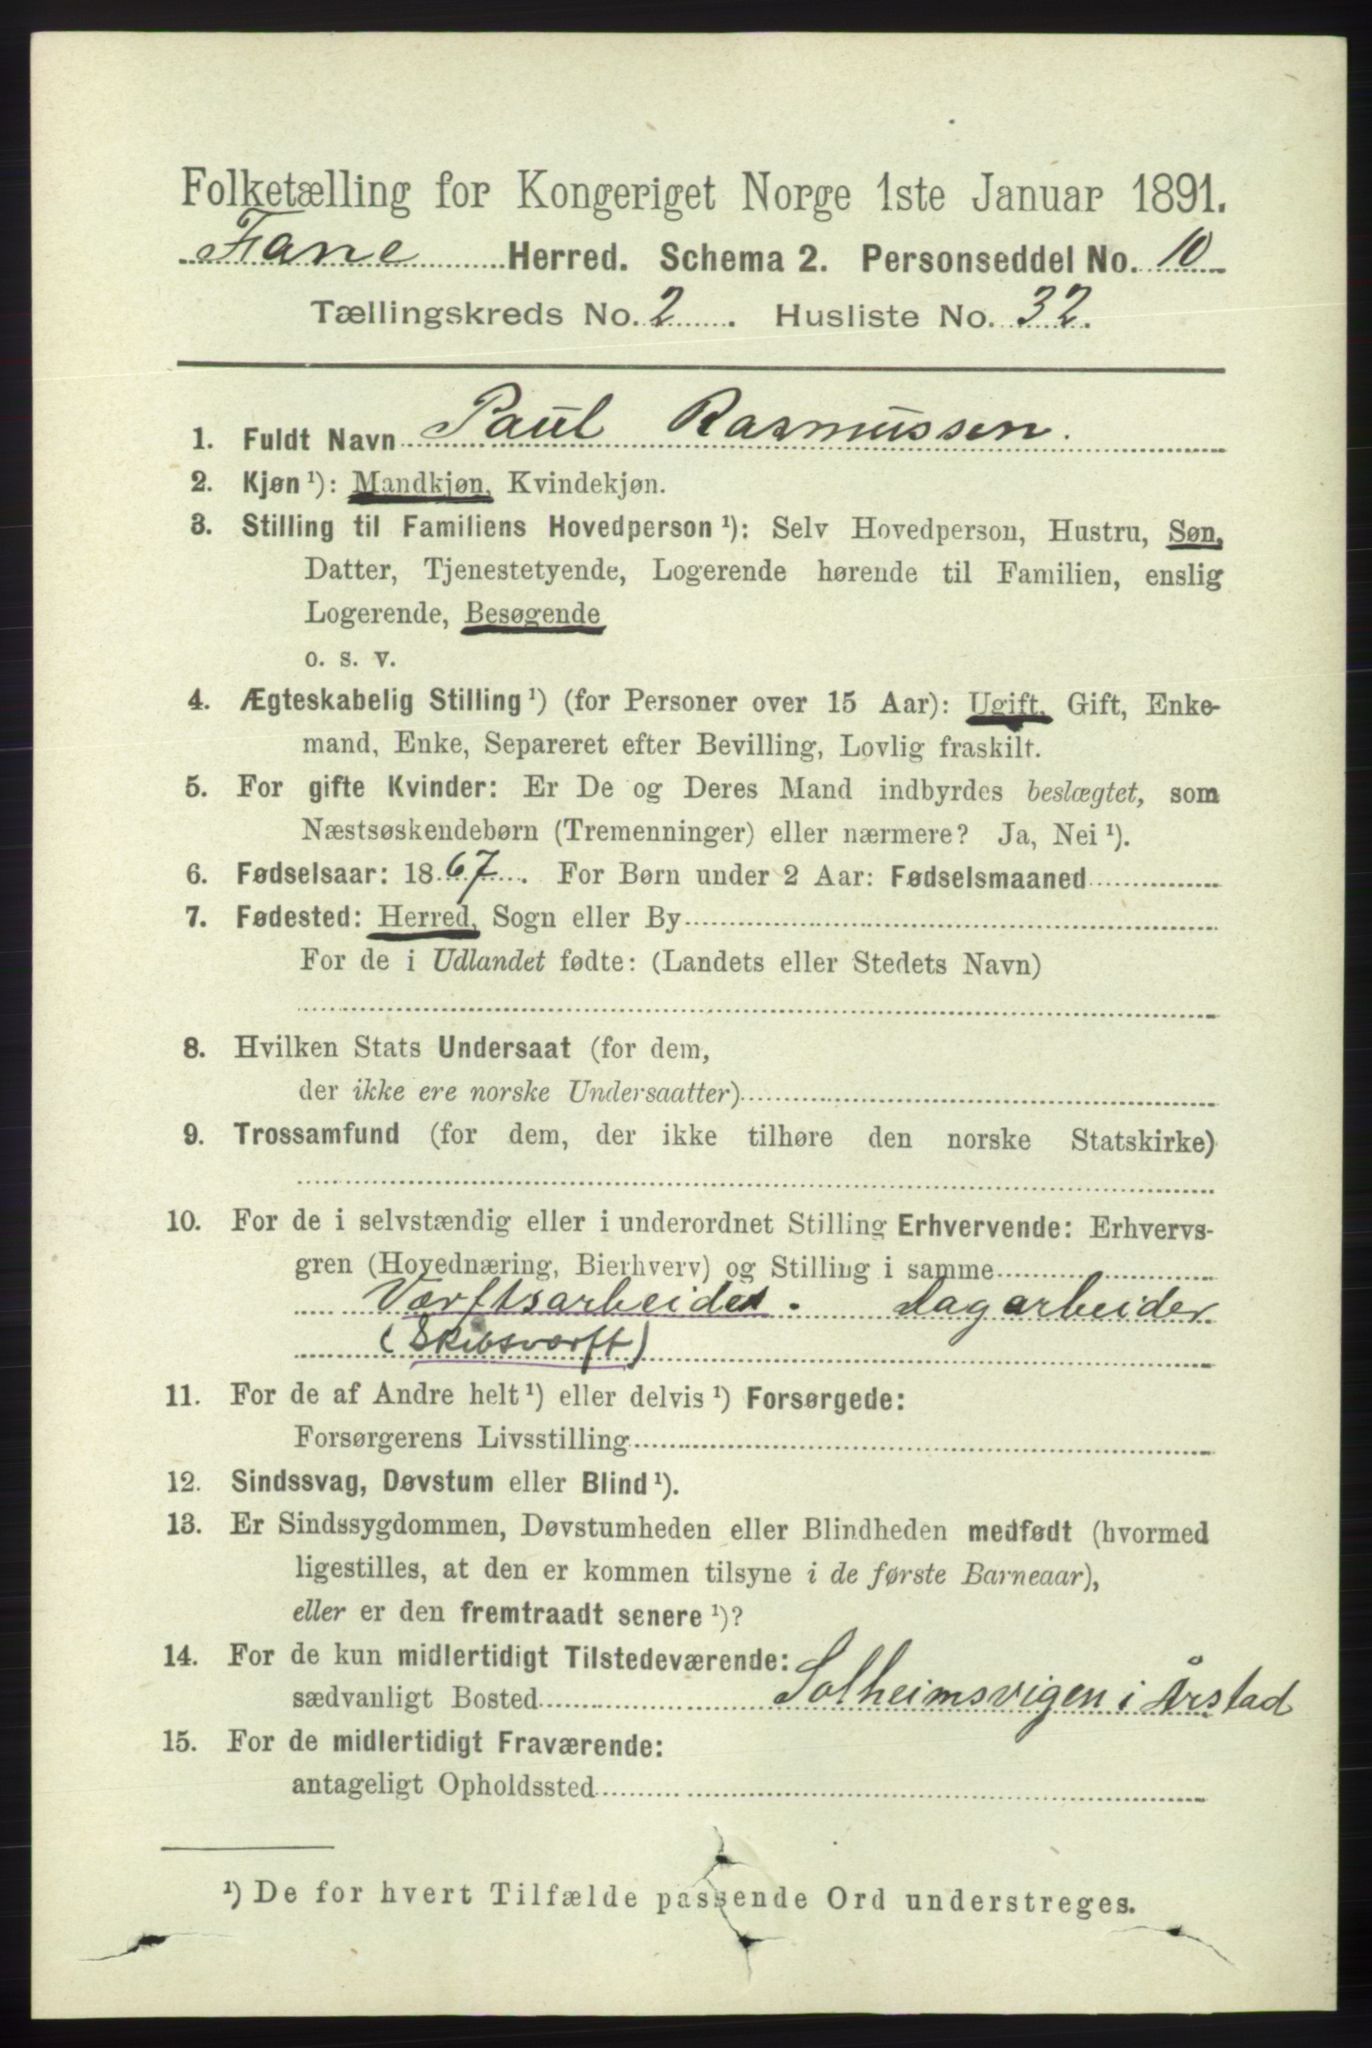 Folketælling for Kongeriget Norge 1ste Januar 1891.
Fane Herred. Schema 2. Personseddel No. 10
Tællingskreds No. 2. Husliste No. 32.
1. Fuldt Navn Paul Rasmussen.
2. Kjøn ¹): Mandkjøn, Kvindekjøn.
3. Stilling til Familiens Hovedperson ¹): Selv Hovedperson, Hustru, Søn,
Datter, Tjenestetyende, Logerende hørende til Familien, enslig
Logerende, Besøgende
o. s. v.
4. Ægteskabelig Stilling ¹) (for Personer over 15 Aar): Ugift, Gift, Enke-
mand, Enke, Separeret efter Bevilling, Lovlig fraskilt.
5. For gifte Kvinder: Er De og Deres Mand indbyrdes beslægtet, som
Næstsøskendebørn (Tremenninger) eller nærmere? Ja, Nei ¹).
6. Fødselsaar: 1867. For Børn under 2 Aar: Fødselsmaaned
7. Fødested: Herred, Sogn eller By
For de i Udlandet fødte: (Landets eller Stedets Navn)
8. Hvilken Stats Undersaat (for dem,
der ikke ere norske Undersaatter)
9. Trossamfund (for dem, der ikke tilhøre den norske Statskirke)
10. For de i selvstændig eller i underordnet Stilling Erhvervende: Erhvervs-
gren (Hovednæring, Bierhverv) og Stilling i samme
Værftsarbeider. Dagarbeider
(Skibsværft)
11. For de af Andre helt ¹) eller delvis ¹) Forsørgede:
Forsørgerens Livsstilling
12. Sindssvag, Døvstum eller Blind ¹).
13. Er Sindssygdommen, Døvstumheden eller Blindheden medfødt (hvormed
ligestilles, at den er kommen tilsyne i de første Barneaar),
eller er den fremtraadt senere ¹)?
14. For de kun midlertidigt Tilstedeværende:
sædvanligt Bosted Solheimsvigen i Årstad
15. For de midlertidigt Fraværende:
antageligt Opholdssted
¹) De for hvert Tilfælde passende Ord understreges.